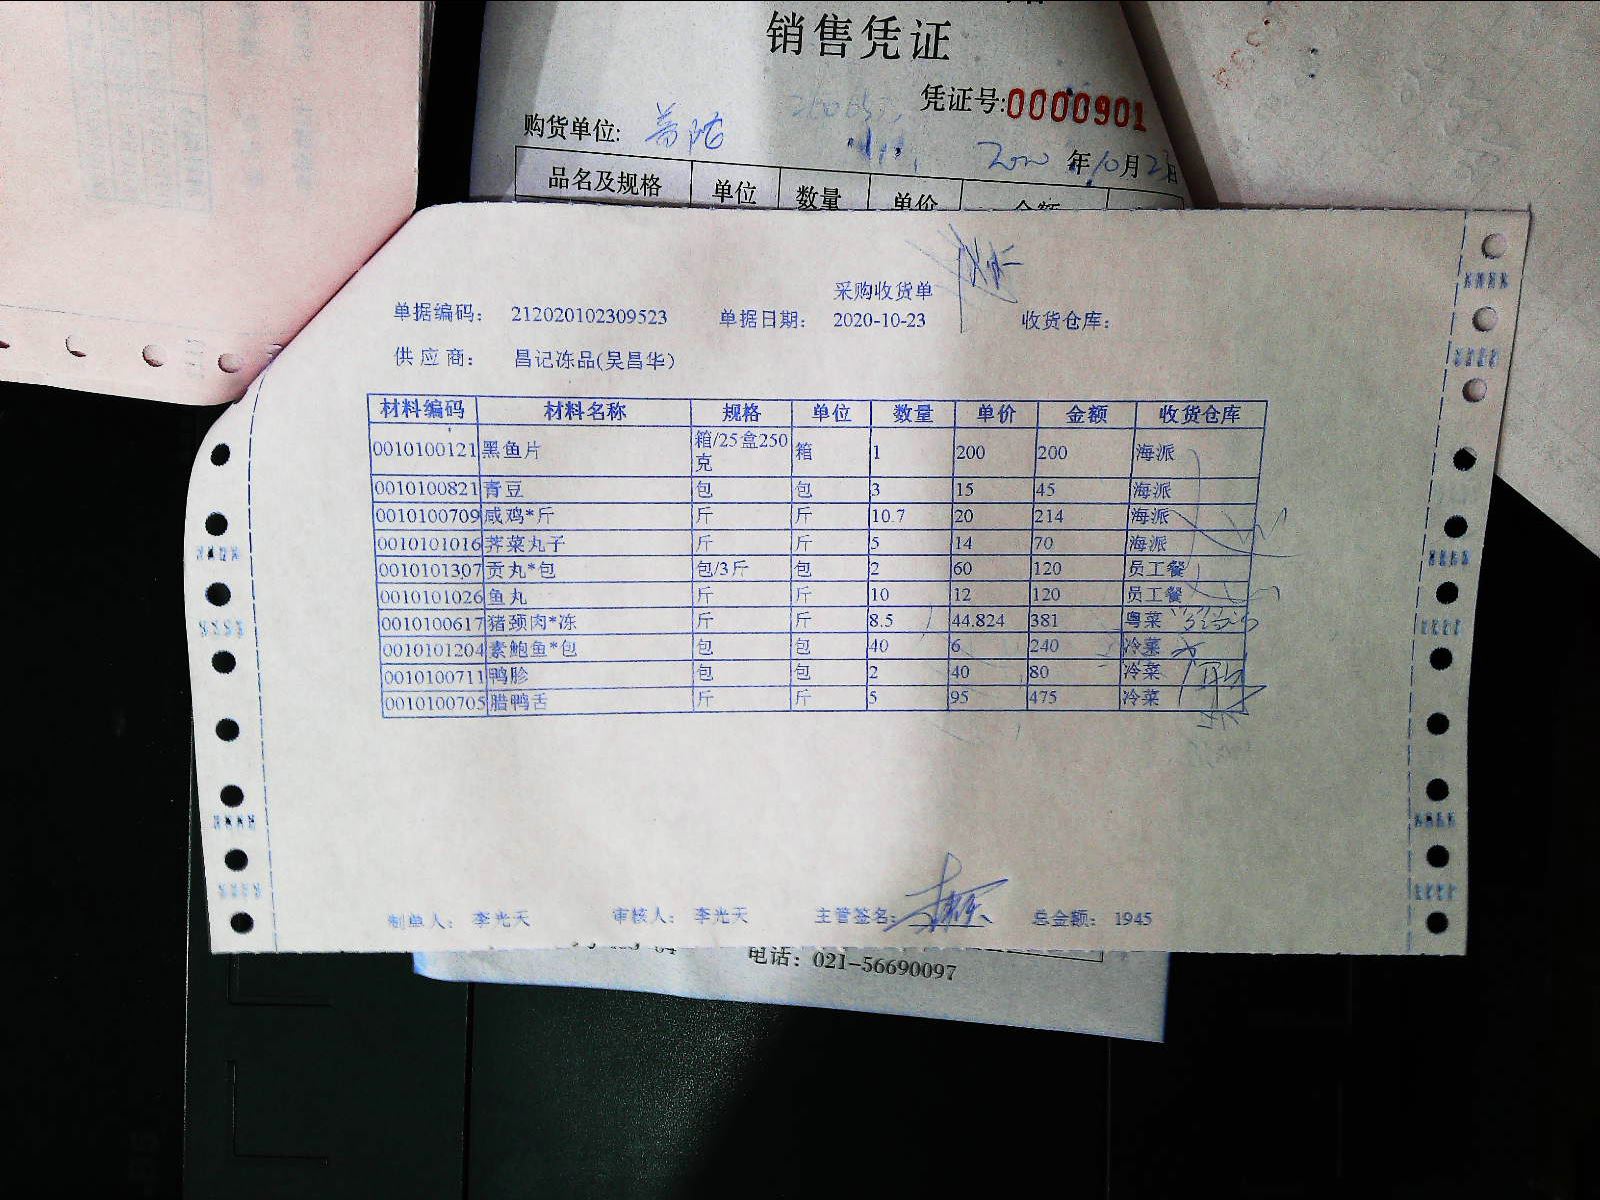 销售凭证
凭证号:0000901
购货单位: 普陀
2020年10月23日
品名及规格 单位 数量 单价 金额
采购收货单
单据编码: 212020102309523 单据日期: 2020-10-23 收货仓库:
供应商: 昌记冻品(吴昌华)
材料编码 材料名称 规格 单位 数量 单价 金额 收货仓库
0010100121 黑鱼片 箱/25盒250克 箱 1 200 200 海派
0010100821 青豆 包 包 3 15 45 海派
0010100709 咸鸡*斤 斤 斤 10.7 20 214 海派
0010101016 荠菜丸子 斤 斤 5 14 70 海派
0010101307 贡丸*包 包/3斤 包 2 60 120 员工餐
0010101026 鱼丸 斤 斤 10 12 120 员工餐
0010100617 猪颈肉*冻 斤 斤 8.5 44.824 381 粤菜
0010101204 素鲍鱼*包 包 包 40 6 240 冷菜
0010100711 鸭胗 包 包 2 40 80 冷菜
0010100705 腊鸭舌 斤 斤 5 95 475 冷菜
制单人: 李光天 审核人: 李光天 主管签名: 总金额: 1945
电话: 021-56690097